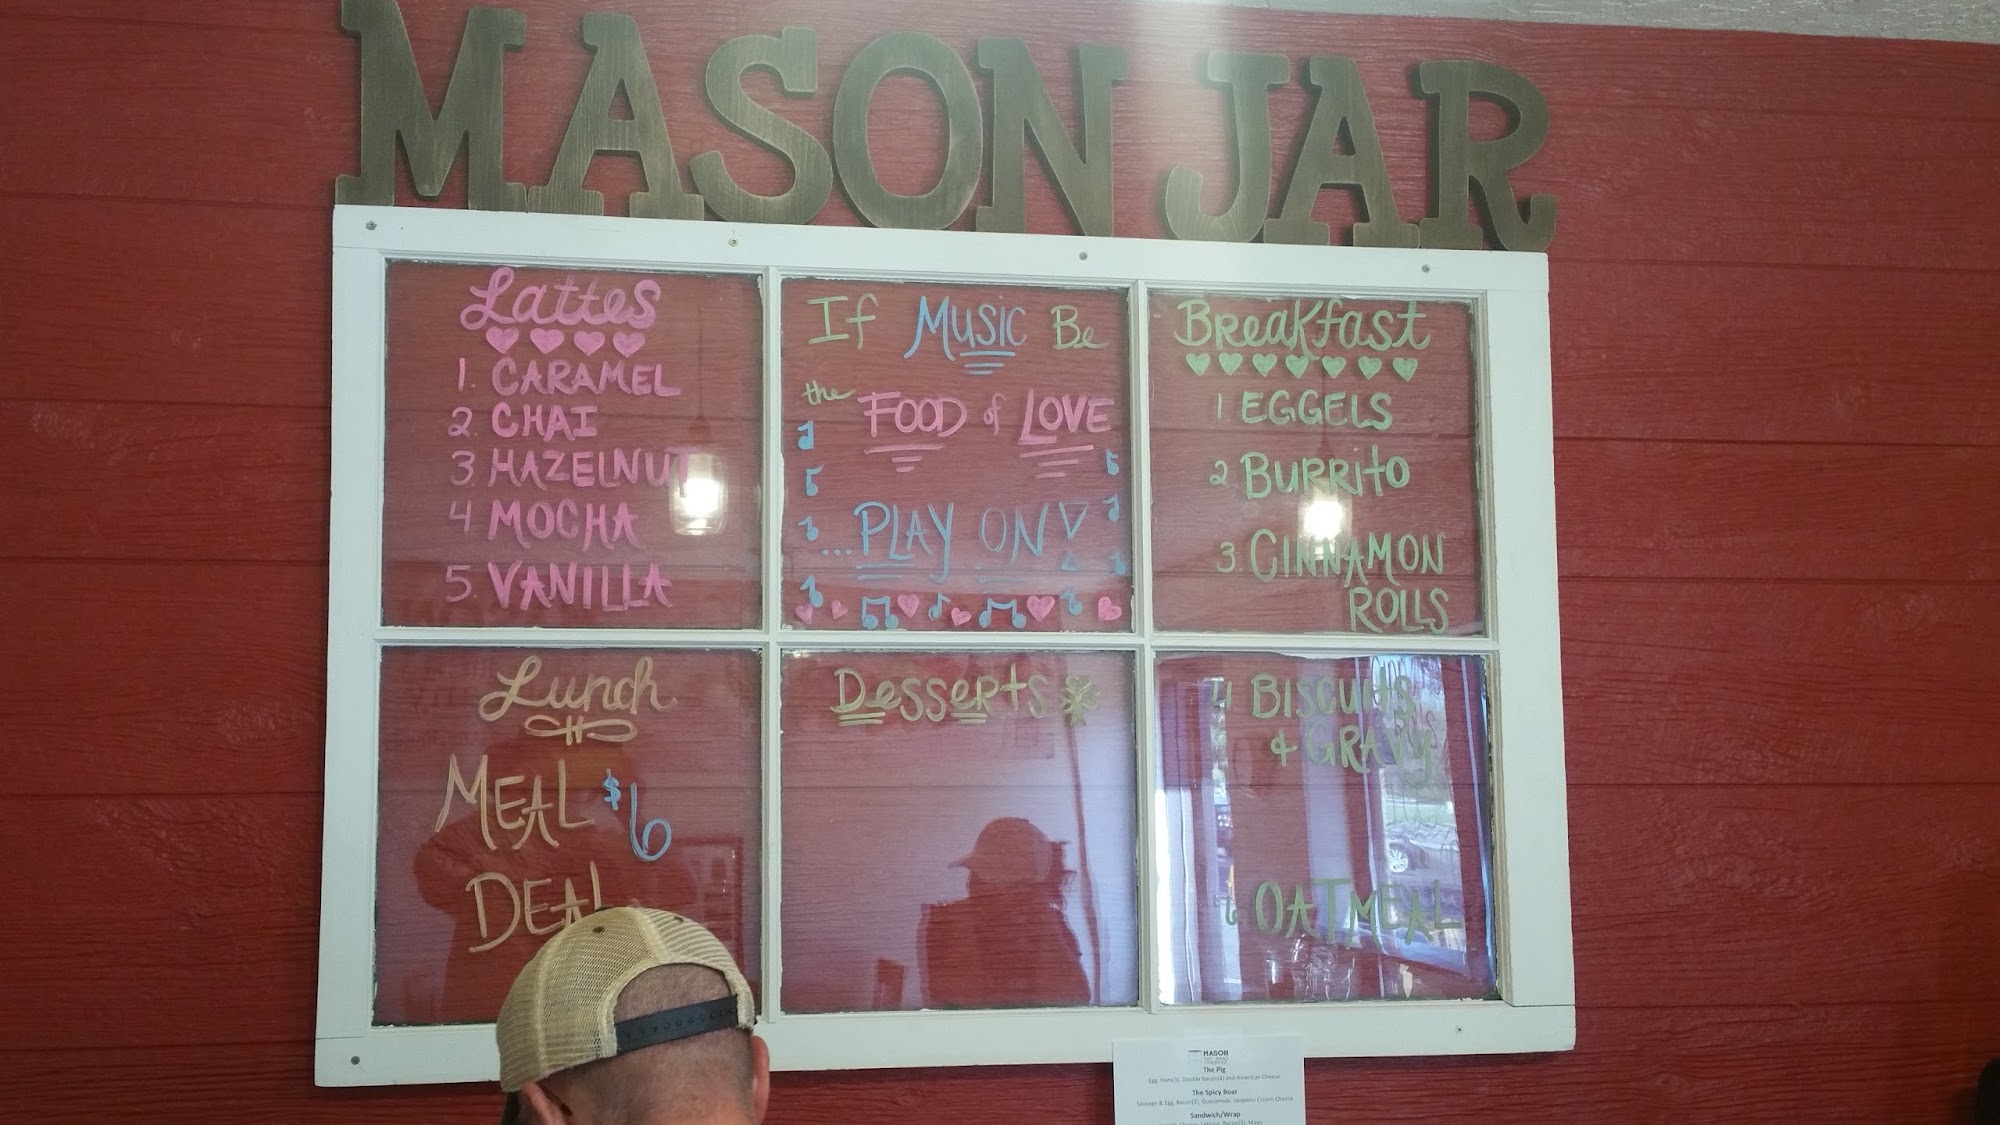 MASON JAR
Lattes
1. CARAMEL
2. CHAI
3. HAZELNUT
4 MOCHA
5. VANILLA
If MUSIC Be
the FOOD of LOVE
...PLAY ON
Breakfast
1 EGGELS
2. BURRITO
3 CINNAMON
ROLLS
Lunch
MEAL $6
DEAL
Desserts
4 BISCUITS
& GRAVY
OATMEAL
MASON
The Pig
Egg, Ham(3), Double Bacon(4) and American Cheese
The Spicy Boar
Sausage & Egg, Bacon(2), Guacamole, Jalapeno Cream Cheese
Sandwich/Wrap